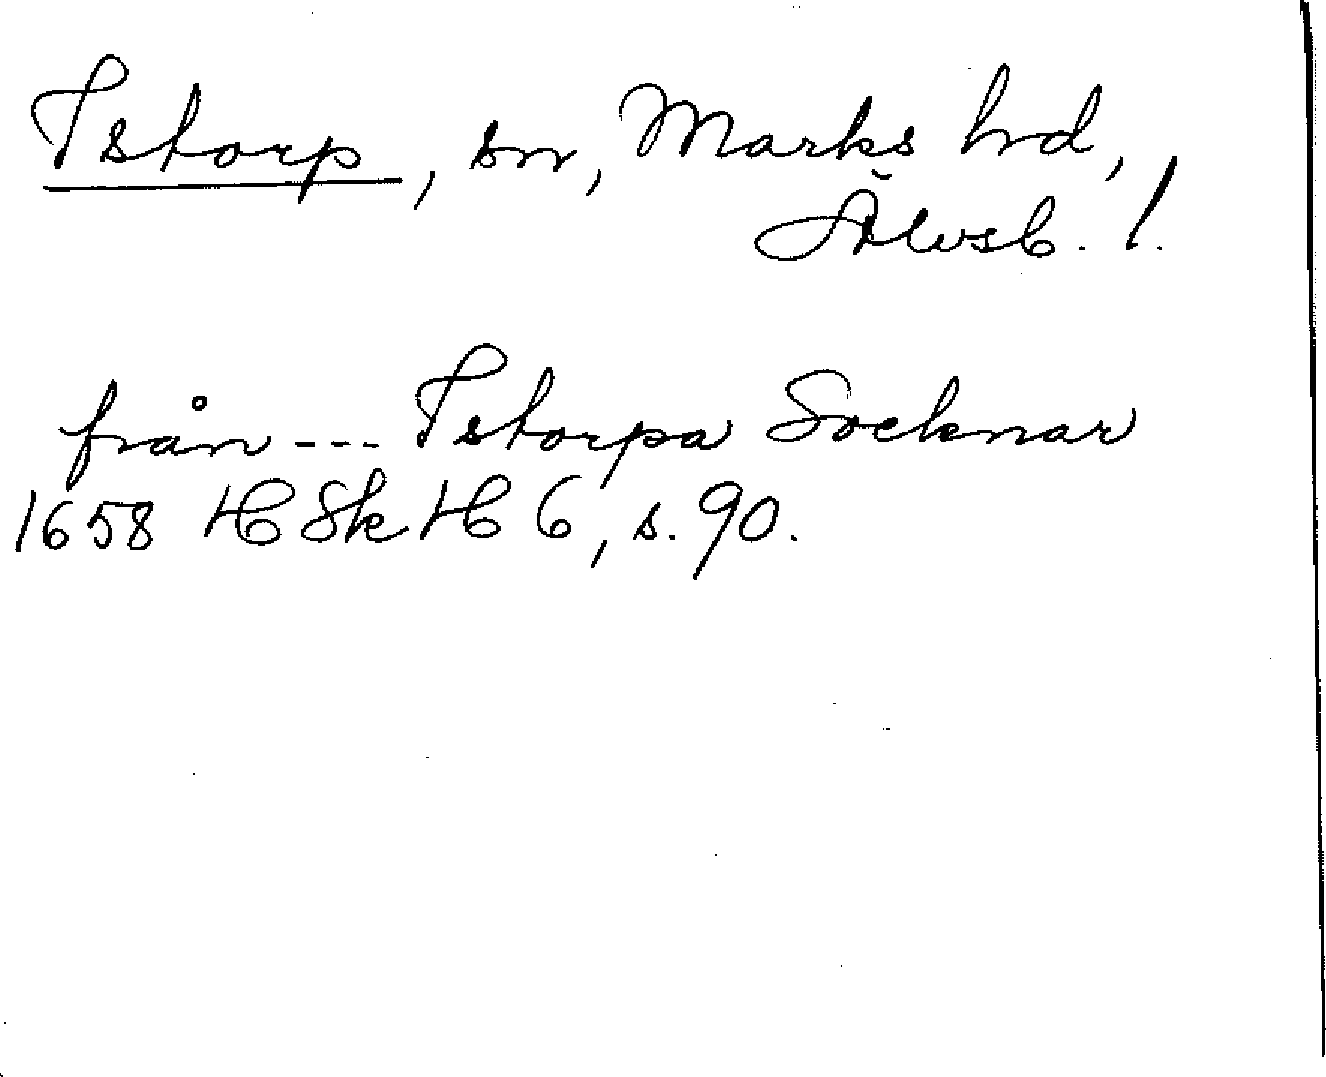 Istorp, sn, Marks hd,
Älvsb. l.
från --- Istorpa Socknar
1658 HSkH 6, s. 90.